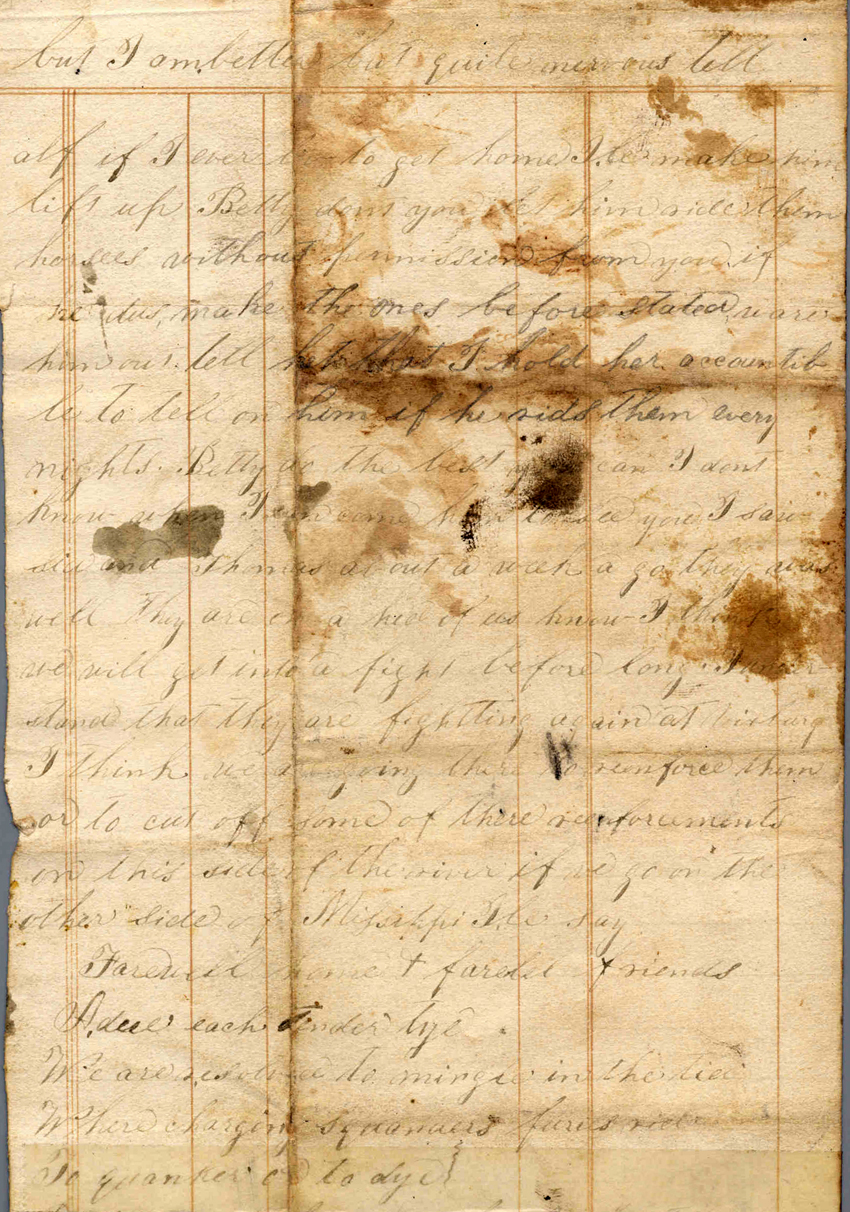 but I am better but quite nervous tell
alf if I ever to get home Ile make him
lift up Betty dont you let him ride them
horsees without permission from you if
he dus, make the ones before stated ware
him out. tell that I hold her accountib
le to tell on him if he rids them every
nights. Betty do the best you can I dont
know when I can come to see you I saw
and Thomas about a week a go they was
well They are on a hed of us know I think
we will get into a fight before long I under
stand that they are fightting again at Vixburg
I think we are going there to reenforce them
or to cut off some of there reenforcements
on this side of the river if we go on the
other side of Misissippi Ile say
Farewell home & farell friends
Adeu each tender tye
We are resolved to mingle in the tide
Where charging squanders furis ride
To quanker or to dye